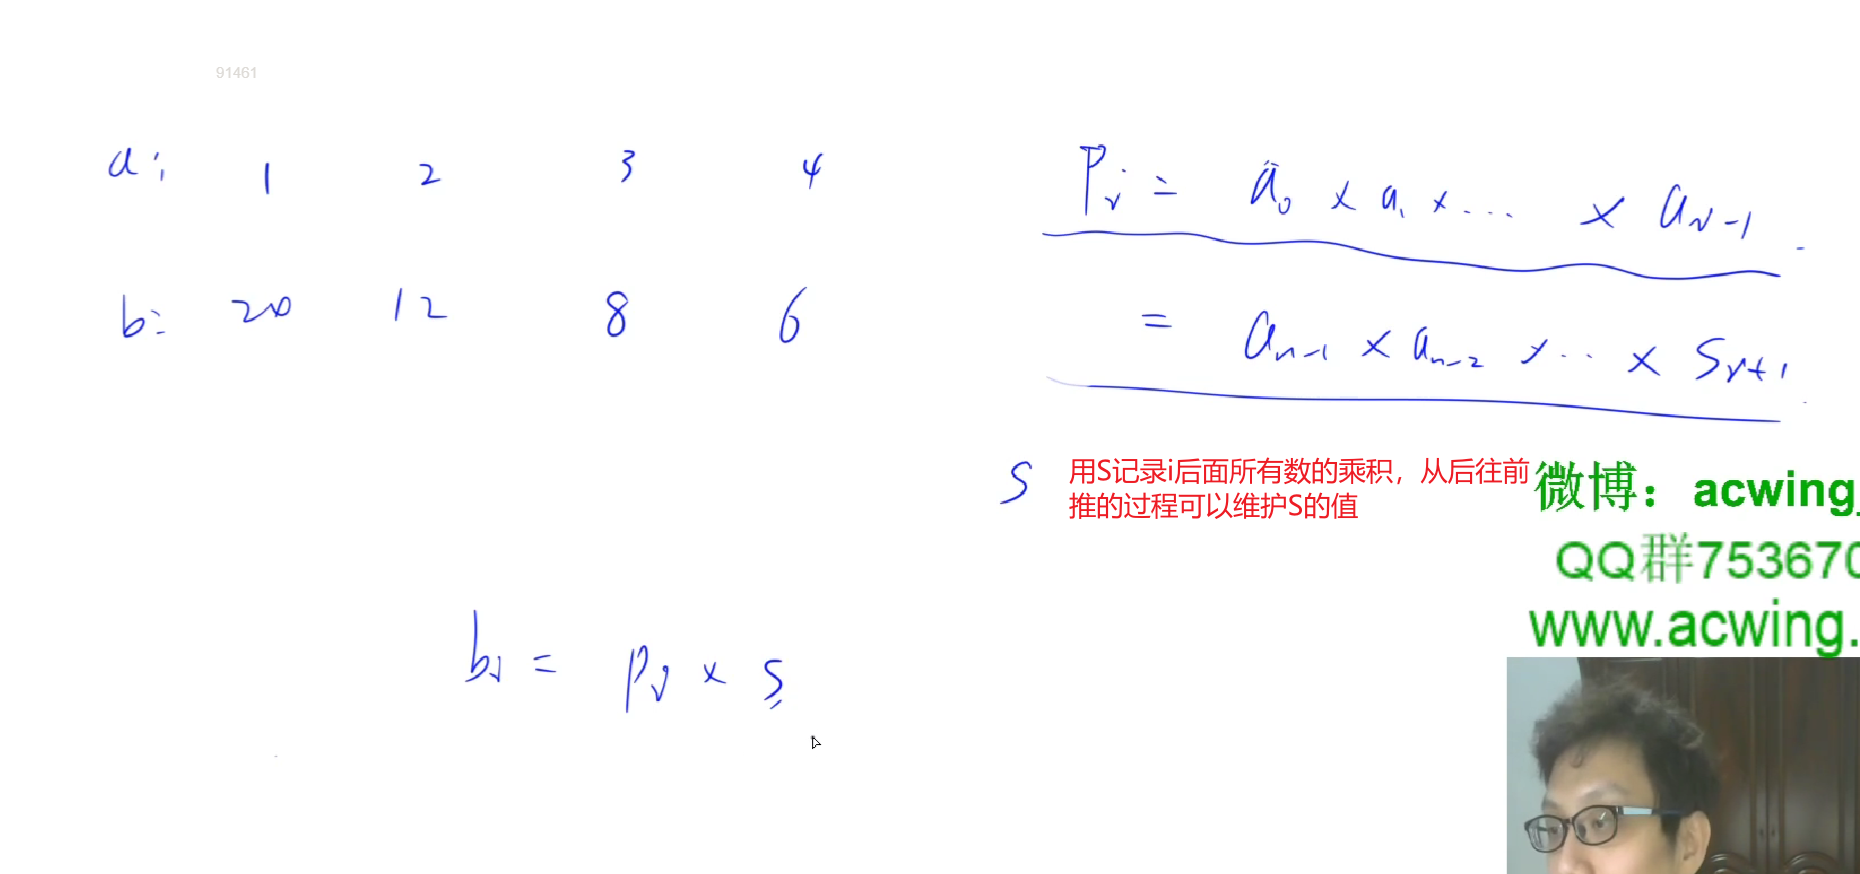 91461
a: 1 2 3 4
b: 20 12 8 6
Pi = a0 × a1 × ... × ai-1
= an-1 × an-2 × ... × Si+1
S
用S记录i后面所有数的乘积，从后往前
推的过程可以维护S的值
微博：acwing_
QQ群753670
www.acwing.
bi = pi × s